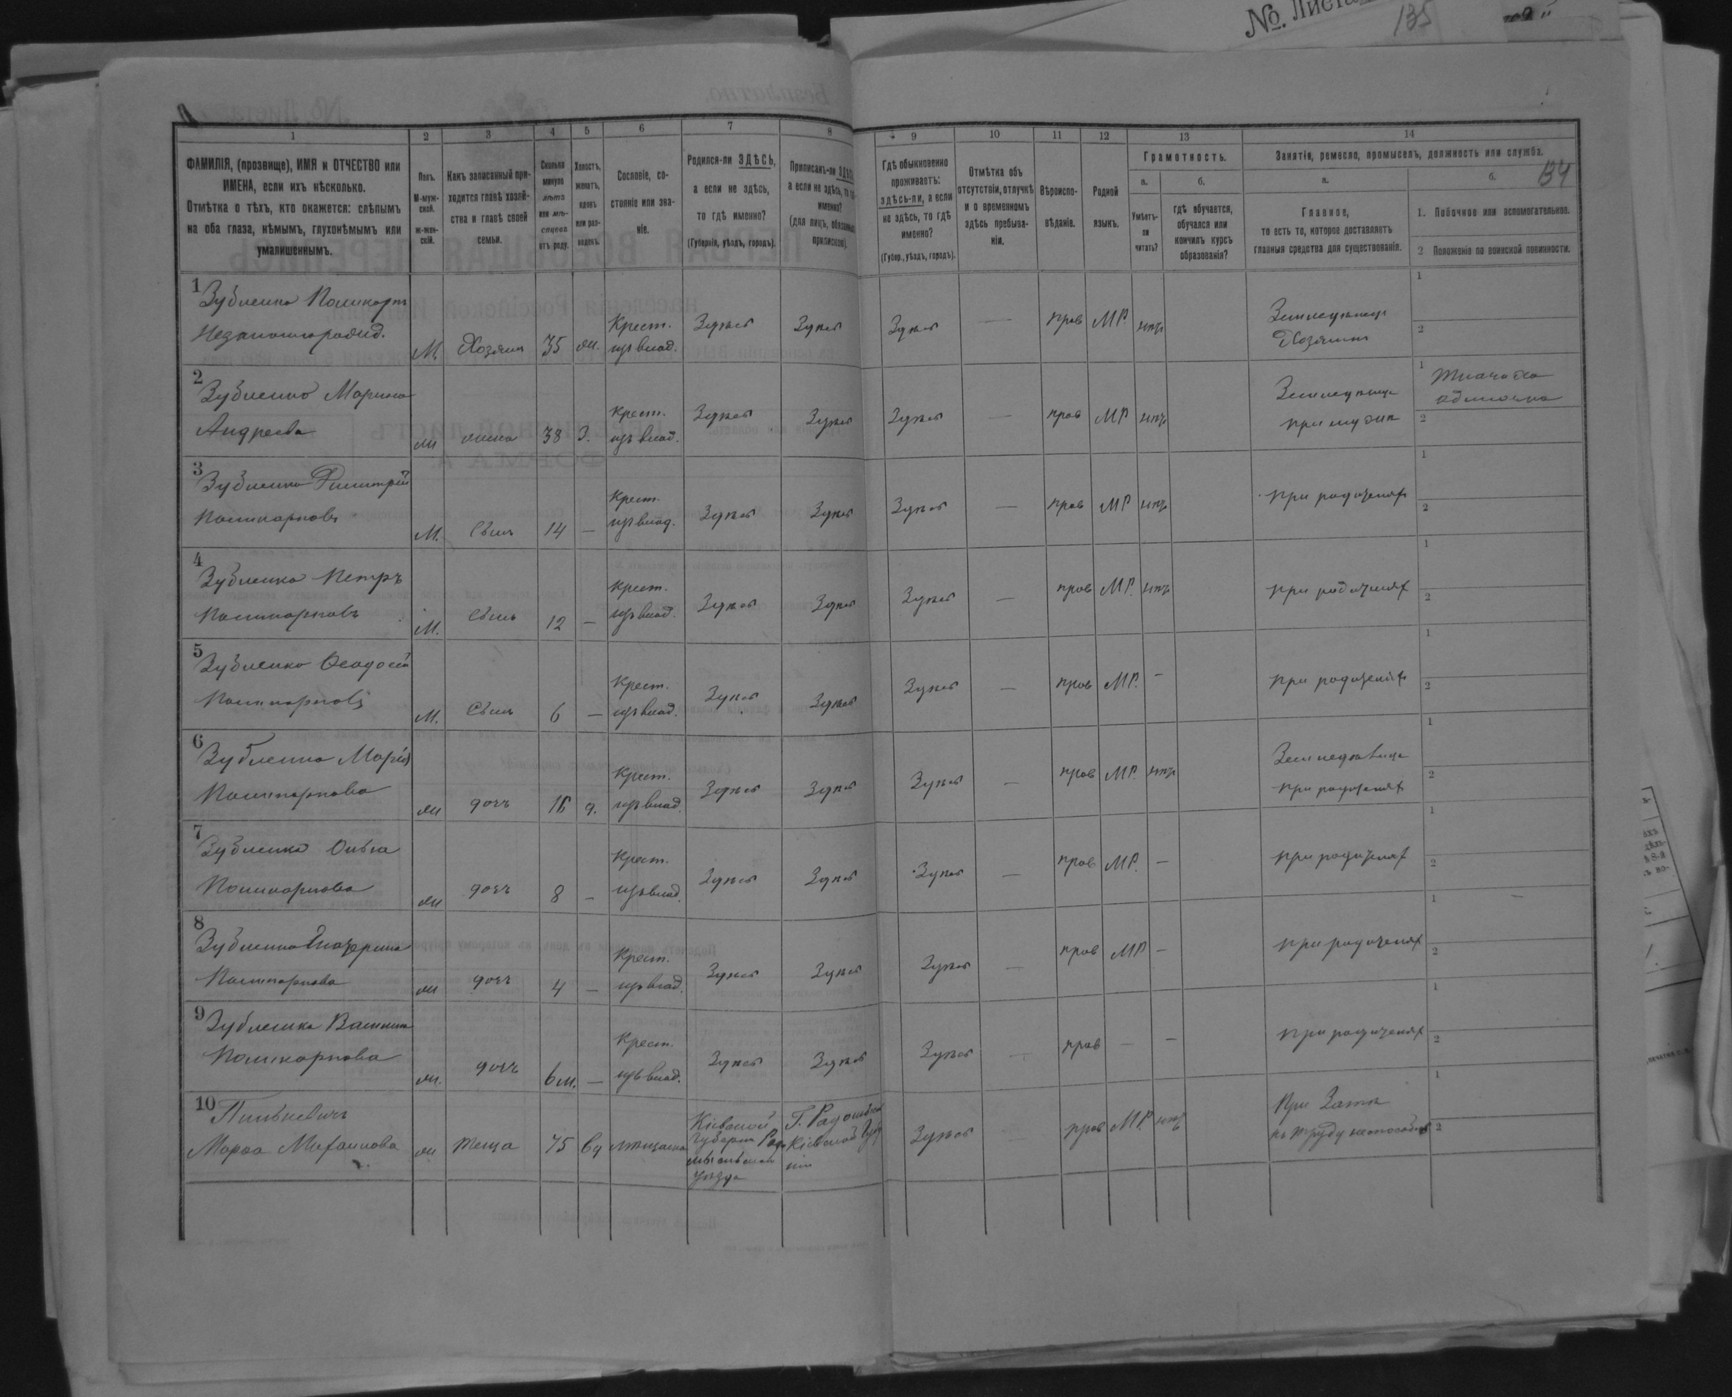 № Листа
135
134
1 2 3 4 5 6 7 8 9 10 11 12 13 14
ФАМИЛІЯ, (прозвище), ИМЯ и ОТЧЕСТВО или ИМЕНА, если ихъ нѣсколько.
Отмѣтка о тѣхъ, кто окажется: слѣпымъ на оба глаза, нѣмымъ, глухонѣмымъ или умалишеннымъ.
Полъ. М-мужской. ж-женскій.
Какъ записанный приходится главѣ хозяйства и главѣ своей семьи.
Сколько минуло лѣтъ или мѣсяцевъ отъ роду.
Холостъ, женатъ, вдовъ или разведенъ.
Сословіе, состояніе или званіе.
Родился-ли ЗДѢСЬ, а если не здѣсь, то гдѣ именно?
(Губернія, уѣздъ, городъ).
Приписанъ-ли ЗДѢСЬ, а если не здѣсь, то гдѣ именно?
(для лицъ, обязанныхъ припиской).
Гдѣ обыкновенно проживаетъ: здѣсь-ли, а если не здѣсь, то гдѣ именно?
(Губер., уѣздъ, городъ).
Отмѣтка объ отсутствіи, отлучкѣ и о временномъ здѣсь пребываніи.
Вѣроисповѣданіе.
Родной языкъ.
Грамотность.
а. Умѣетъ-ли читать?
б. гдѣ обучается, обучался или кончилъ курсъ образованія?
Занятіе, ремесло, промыселъ, должность или служба.
а. Главное, то есть то, которое доставляетъ главныя средства для существованія.
б.
1. Побочное или вспомогательное.
2 Положеніе по воинской повинности.
1 Зубленко Поликарпъ
Незаконнорожд. М. Хозяинъ 35 ж. Крест. изъ влад. Здѣсь Здѣсь Здѣсь — прав МР. нтъ Земледѣлецъ Хозяинъ
1
2
2 Зубленко Марина
Андреева ж жена 38 З. Крест. изъ влад. Здѣсь Здѣсь Здѣсь — прав МР нтъ Земледѣлица при мужѣ
1 Ткачиха одиночка
2
3 Зубленко Димитрій
Поликарповъ М. Сынъ 14 — Крест. изъ влад. Здѣсь Здѣсь Здѣсь — прав МР нтъ при родителях
1
2
4 Зубленко Петръ
Поликарповъ М. Сынъ 12 — Крест. изъ влад. Здѣсь Здѣсь Здѣсь — прав МР. нтъ при родителях
1
2
5 Зубленко Ѳеодосій
Поликарповъ М. Сынъ 6 — Крест. изъ влад. Здѣсь Здѣсь Здѣсь — прав МР. — при родителях
1
2
6 Зубленко Марія
Поликарпова ж дочь 16 д. Крест. изъ влад. Здѣсь Здѣсь Здѣсь — прав МР. нтъ Земледѣлица при родителях
1
2
7 Зубленко Ольга
Поликарпова ж дочь 8 — Крест. изъ влад. Здѣсь Здѣсь Здѣсь — прав МР. — при родителях
1
2
8 Зубленко
Поликарпова ж дочь 4 — Крест. изъ влад. Здѣсь Здѣсь Здѣсь — прав МР — при родителях
1
2
9 Зубленко
Поликарпова ж. дочь 6 м. — Крест. изъ влад. Здѣсь Здѣсь Здѣсь — прав — — при родителях
1
2
10 Пинкевичъ
Марѳа Михаилова ж теща 75 вд мѣщанка Кіевской Губерніи Радомысльскаго уѣзда Г. Радомысль Кіевской Губ Здѣсь — прав МР. нтъ При Зятѣ къ труду неспособна
1
2